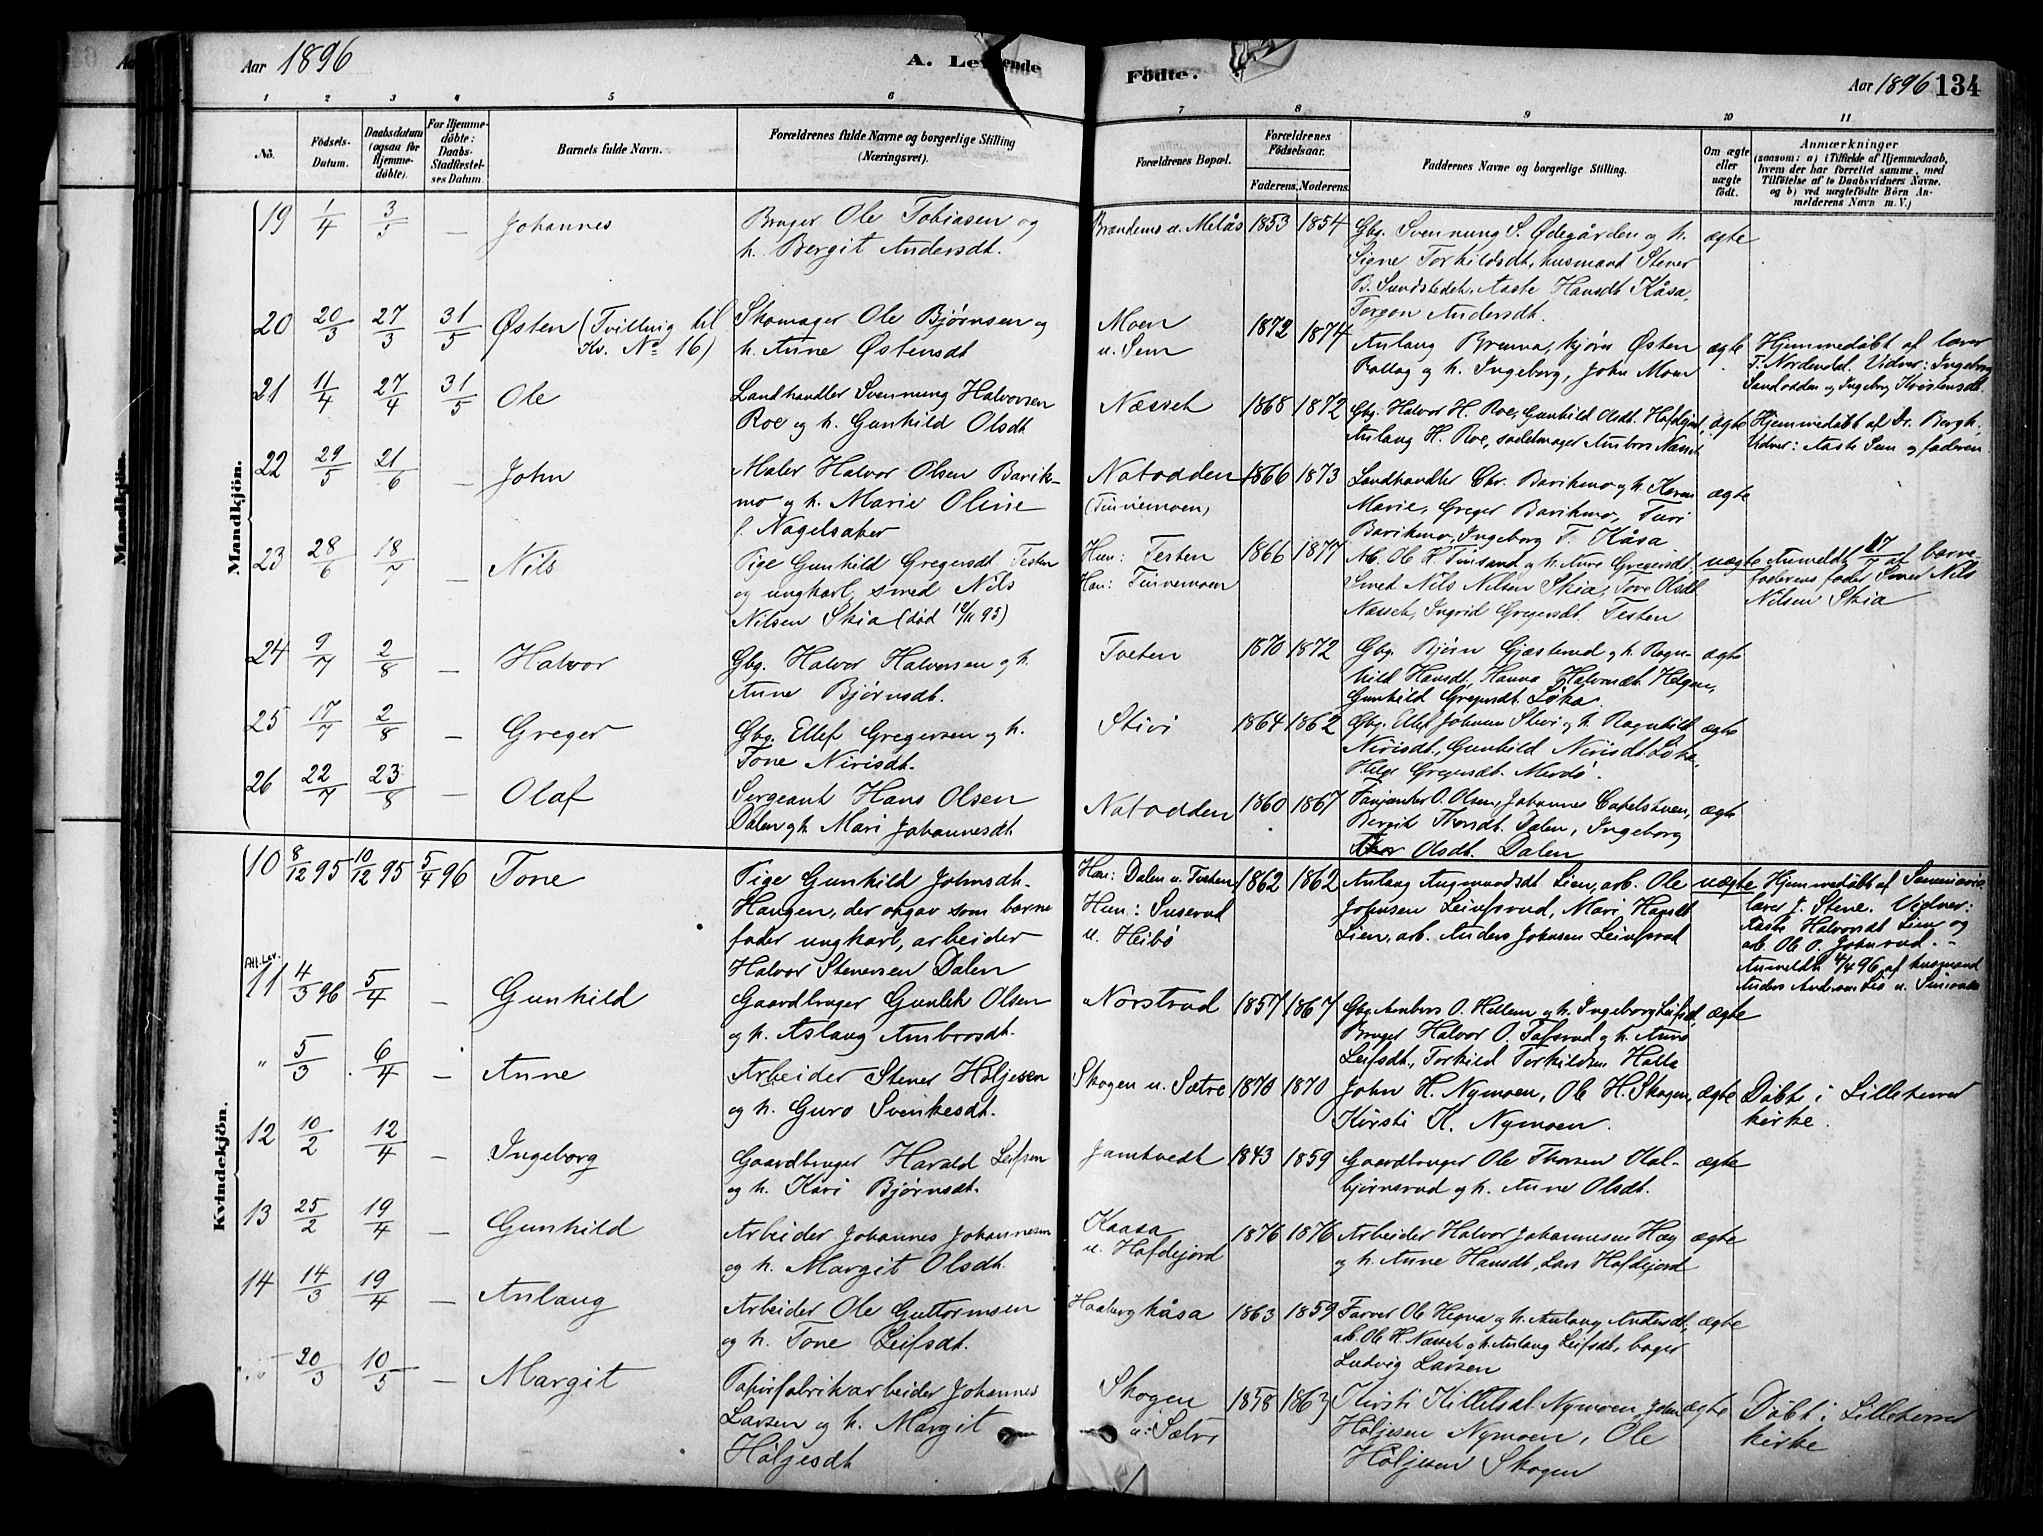 Aar 1896
A. Lev ende
Födte.
Aar 1896 134
1 2 3 4 5 6 7 8 9 10 11
No.
Födsels-Datum.
Daabsdatum (ogsaa for Hjemme-döbte).
For Hjemme-döbte: Daabs-Stadfæstel-ses Datum.
Barnets fulde Navn.
Forældrenes fulde Navne og borgerlige Stilling (Næringsvei).
Forældrenes Bopæl.
Forældrenes Födselsaar.
Faderens. Moderens.
Faddernes Navne og borgerlige Stilling.
Om ægte eller uægte födt.
Anmærkninger
(saasom: a) i Tilfælde af Hjemmedaab,
hvem der har forrettet samme, med
Tilföielse af to Daabsvidners Navne.
og b) ved uægtefödte Börn An-
melderens Navn m. V.)
Mandkjön.
19 1/4 3/5 — Johannes
Bruger Ole Tobiasen og
h. Bergit Andersdt.
1853 1854
Gbg. Svennung S. Ødegården og h.
Signe Torkildsdt, husmand Stener
B. Sundstedet. Aaste Hansdt Kåsa,
Torgon Andersdt.
ægte
20 20/3 27/3 31/5 Østen (Tvilling til
Kv. No 16)
Skomager Ole Bjørnsen og
h. Anne Østensdt
Moen
u. Sem
1872 1874
Aslaug Brenna, Kjörn Østen
Bollag og h. Ingeborg, John Moen
ægte
Hjemmedøbt af lærer
T. Nordendal. Vidner: Ingeborg
Sandodden og Ingeborg Kristensdt.
21 11/4 27/4 31/5 Ole
Landhandler Svennung Halvorsen
Roe og h. Gunhild Olsdt
Næsset
1868 1872
Gbg. Halvor H. Roe, Gunhild Olsdt Hafdejord,
Aslaug H. Roe, sadelmager Ambors Næsset
ægte
Hjemmedøbt af Dr. Bergh.
Vidner: Aaste Sem og faderen.
22 29/5 21/6 — John
Maler Halvor Olsen Bavik-
mo og h. Marie Oline
f. Nagelsaker
Notodden
(Tinnemoen)
1866 1873
Landhandler Chr. Bavikmo og h. Karen
Marie, Greger Bavikmo, Turi
Bavikmo, Ingeborg T. Kåsa
ægte
23 28/6 18/7 — Nils
Pige Gunhild Gregersdt Testen
og ungkarl, smed Nils
Nilsen Skia (død 12/11 95)
Hun: Testen
Han: Tinnemoen
1866 1877
Ab. Ole K. Tinsand og h. Anne Gregersdt.
Smed Nils Nilsen Skia, Tore Olsdt
Næsset, Ingrid Gregersdt. Testen
uægte
Anmeldt 17/7 af barne-
faderens fader Smed Nils
Nilsen Skia
24 9/7 2/8 — Halvor
Gbg. Halvor Halvorsen og h.
Anne Bjørnsdt.
Tveten
1870 1872
Gbg. Bjørn Gjæstrud og h. Ragn-
hild Hansdt, Hanna Halvorsdt. Hægna,
Gunhild Gregersdt. Løka.
ægte
25 17/7 2/8 — Greger
Gbg. Ellef Gregersen og h.
Tone Nirisdt.
Skivi
1864 1862
Gbg. Ellef Johnsen Skivi og h. Ragnhild
Nirisdt., Gunhild Nirisdt Løka,
Helge Gregersdt. Merdø.
ægte
26 22/7 23/8 — Olaf
Sergeant Hans Olsen
Dalen og h. Mari Johannesdt
Notodden
1860 1867
Furjenter O. Olsen, Johannes Cabelstuen,
Bergit Thorsdt. Dalen, Ingeborg
Olsdt. Dalen
ægte
Kvindekjön.
10 8/12 95 10/12 95 5/4 96 Tone
Pige Gunhild Johnsdt.
Haugen, der opgav som barne
fader ungkarl, arbeider
Halvor Stenersen Dalen
Han: Dalen u. Testen
Hun: Suserud
u. Heibø
1862 1862
Aslaug Aagmundsdt Lien, arb. Ole
Johnsen Leinsrud, Mari Hansdt
Lien, arb. Anders Johnsen Leinsrud
uægte
Hjemmedøbt af Seminarie
lærer J. Stene. Vidner:
Aaste Halvorsdt Lien og
arb. Ole O. Johnsrud.
Anmeldt 4/4 96 af husmand
Anders Andersen Lie u. Suserud
All. Lev.
11 4/3 96 5/4 — Gunhild
Gaardbruger Gunlek Olsen
og h. Aslaug Ambrosdt.
Norstrud
1857 1867
Gbg. Ambors O. Hellem og h. Ingeborg Leifsdt,
Bruger Halvor O. Tofsrud og h. Anne
Leifsdt., Torkild Torkildsen Holte
ægte
" 5/3 6/4 — Anne
Arbeider Stener Höljesen
og h. Guro Svenkesdt.
Skogen u. Sætre
1870 1870
John H. Nymoen, Ole H. Skogen,
Kirsti K. Nymoen.
ægte
Døbt i Lilleherred
kirke.
12 10/2 12/4 — Ingeborg
Gaardbruger Harald Leifsen
og h. Kari Bjørnsdt.
Jamtvedt
1843 1859
Gaardbruger Ole Thorsen Hal-
bjønsrud og h. Anne Olsdt.
ægte
13 25/2 19/4 — Gunhild
Arbeider Johannes Johannesen
og h. Margit Olsdt.
Kaasa
u. Hafdejord
1876 1876
Arbeider Halvor Johannesen Hæg
og h. Anne Hansdt, Lars Hofdejord
ægte
14 14/3 19/4 — Aslaug
Arbeider Ole Guttormsen
og h. Tone Leifsdt.
Haaberg kåsa
1863 1859
Farver Ole Hegna og h. Aslaug Andersdt,
ab. Ole H. Næsset og h. Aslaug Leifsdt, bager
Ludvig Larsen
ægte
20/3 10/5 — Margit
Papirfabrikarbeider Johannes
Larsen og h. Margit
Höljesdt
Skogen
u. Sætre
1858 1863
Kirsti Killetsdal Nymoen, John
Höljesen Nymoen, Ole
Höljesen Skogen
ægte
Døbt i Lilleherred
kirke